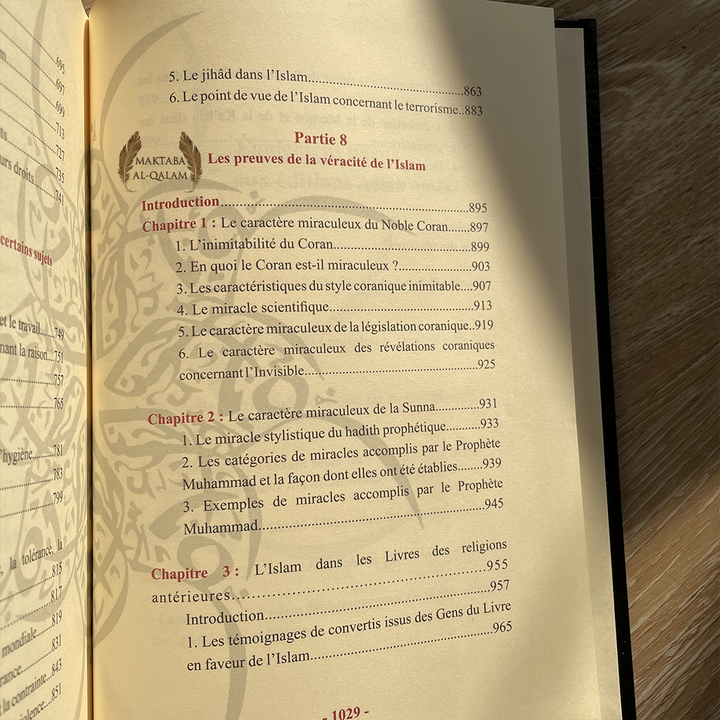 695
697
699
713
727
735
urs droits
741
certains sujets
et le travail.....749
nant la raison...751
757
765
l'hygiène..........781
783
799
la tolérance, la
815
817
819
mondiale
831
rance
843
la contrainte
851
violence
5. Le jihâd dans l'Islam..........863
6. Le point de vue de l'Islam concernant le terrorisme..883
Partie 8
MAKTABA
AL-QALAM
Les preuves de la véracité de l'Islam
Introduction..........895
Chapitre 1 : Le caractère miraculeux du Noble Coran.......897
1. L'inimitabilité du Coran..........899
2. En quoi le Coran est-il miraculeux ?..........903
3. Les caractéristiques du style coranique inimitable....907
4. Le miracle scientifique..........913
5. Le caractère miraculeux de la législation coranique..919
6. Le caractère miraculeux des révélations coraniques
concernant l'Invisible..........925
Chapitre 2 : Le caractère miraculeux de la Sunna.............931
1. Le miracle stylistique du hadith prophétique..........933
2. Les catégories de miracles accomplis par le Prophète
Muhammad et la façon dont elles ont été établies........939
3. Exemples de miracles accomplis par le Prophète
Muhammad..........945
Chapitre 3 : L'Islam dans les Livres des religions
antérieures..........955
Introduction..........957
1. Les témoignages de convertis issus des Gens du Livre
en faveur de l'Islam..........965
- 1029 -